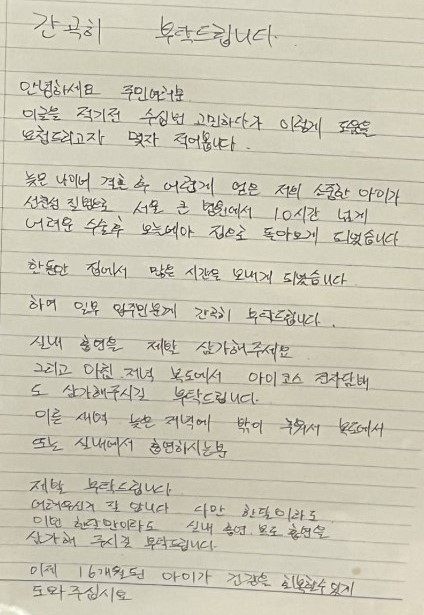 간곡히 부탁드립니다.
안녕하세요 주민여러분
이글을 적기전 수십번 고민하다가 이렇게 도움을
요청드리고자 몇자 적어봅니다.
늦은 나이에 결혼 후 어렵게 얻은 저의 소중한 아이가
선천성 질병으로 서울 큰 병원에서 10시간 넘게
어려운 수술후 오늘에야 집으로 돌아오게 되었습니다
한동안 집에서 많은 시간을 보내게 되었습니다
하여 일부 입주민분께 간곡히 부탁드립니다.
실내 흡연을 제발 삼가해주세요
그리고 아침 저녁 복도에서 아이코스 전자담배
도 삼가해주시길 부탁드립니다.
이른 새벽 늦은 저녁에 밖이 추워서 복도에서
또는 실내에서 흡연하시는분
제발 부탁드립니다
어려우신거 잘 압니다 다만 한달이라도
이번 한달만이라도 실내 흡연 복도 흡연을
삼가해 주시길 부탁드립니다.
이제 16개월된 아이가 건강을 회복할수있게
도와주십시요